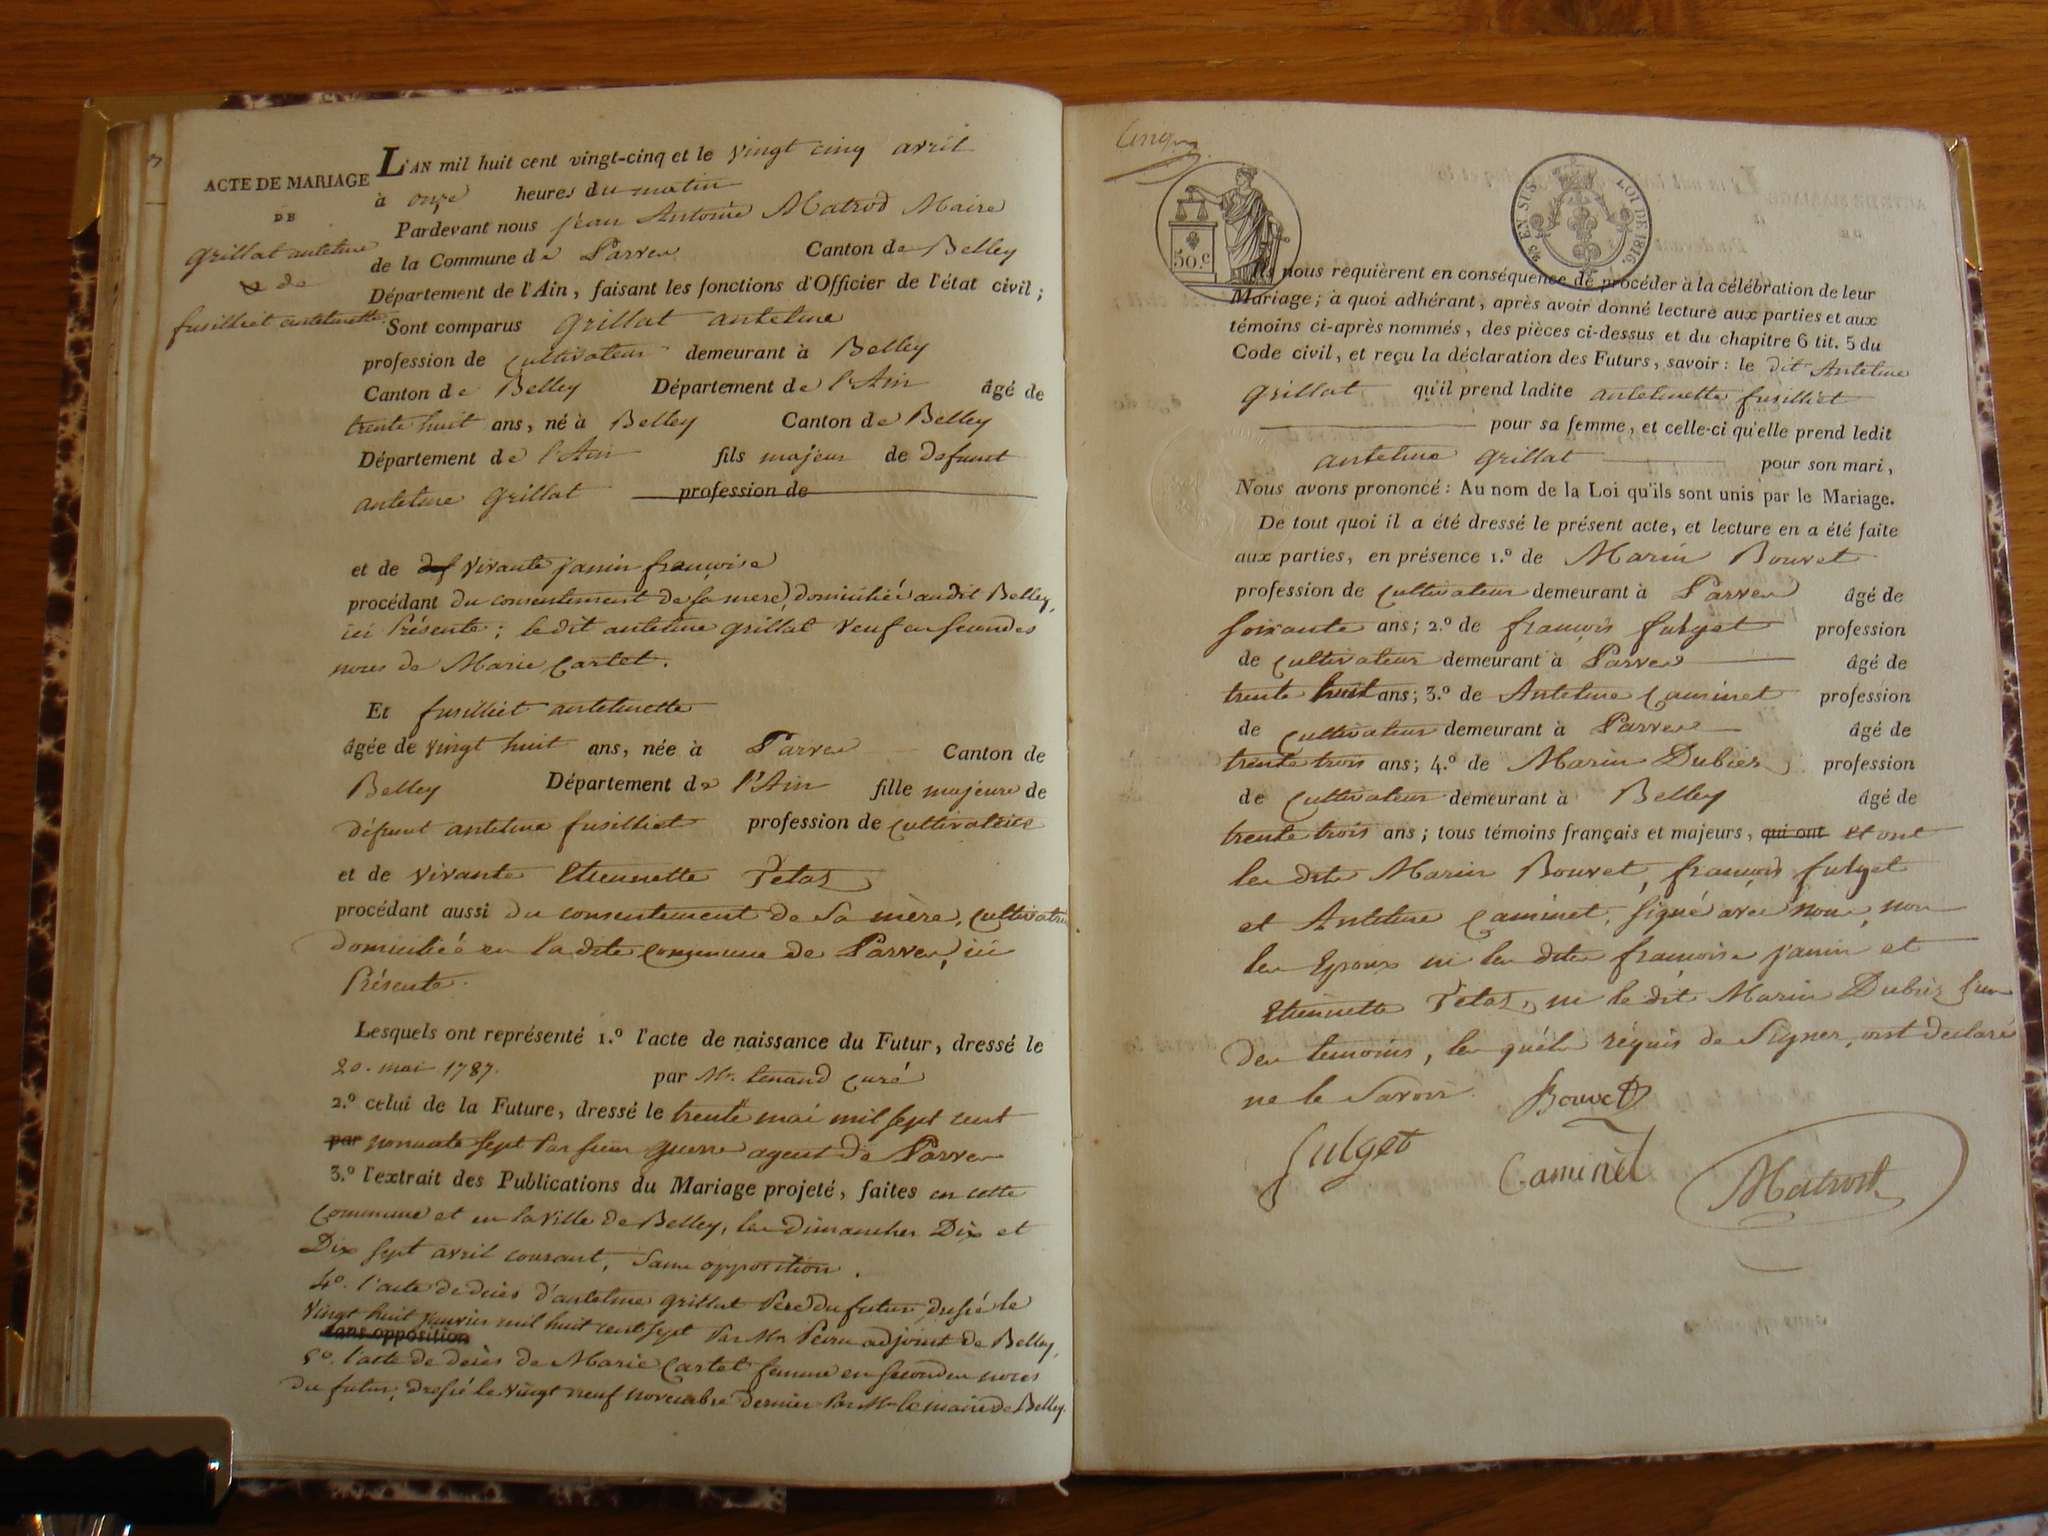 3
ACTE DE MARIAGE
DE
grillat antelme
& de
fusilliet antelmette
L'AN mil huit cent vingt-cinq et le vingt cinq avril
à onze heures du matin
Pardevant nous jean Antoine Matrod Maire
de la Commune de Parves Canton de Belley
Département de l'Ain, faisant les fonctions d'Officier de l'état civil;
Sont comparus grillat antelme
profession de cultivateur demeurant à Belley
Canton de Belley Département de l'Ain âgé de
trente huit ans, né à Belley Canton de Belley
Département de l'Ain fils majeur de defunt
antelme grillat profession de
et de def vivante janin françoise
procédant du consentement de sa mere, domiciliée audit Belley,
ici Présente; ledit antelme grillat veuf en secondes
noces de Marie Cartet.
Et fusilliet antelmette
âgée de vingt huit ans, née à Parves Canton de
Belley Département de l'Ain fille majeure de
défunt antelme fusilliet profession de cultivatrice
et de vivante Etiennette Petaz
procédant aussi du consentement de sa mère, cultivatrice
domiciliée en la dite commune de Parves, ici
Présente.
Lesquels ont représenté 1.º l'acte de naissance du Futur, dressé le
20. mai 1787. par Mr. tenand curé
2.º celui de la Future, dressé le trente mai mil sept cent
par nonante sept par sieur guerre agent de Parves
3.º l'extrait des Publications du Mariage projeté, faites en cette
commune et en la ville de Belley, les dimanches Dix et
Dix sept avril courant, sans opposition.
4º. l'acte de décès d'antelme grillat Père du futur, dressé le
vingt huit janvier mil huit cent sept par Mr adjoint de Belley,
sans opposition
5º. l'acte de décès de Marie Cartet femme en secondes noces
du futur, dressé le vingt neuf novembre dernier par Mr le maire de Belley.
50.c
25 EN SUS
LOI DE 1816.
Ils nous requièrent en conséquence de procéder à la célébration de leur
Mariage; à quoi adhérant, après avoir donné lecture aux parties et aux
témoins ci-après nommés, des pièces ci-dessus et du chapitre 6 tit. 5 du
Code civil, et reçu la déclaration des Futurs, savoir: le dit Antelme
grillat qu'il prend ladite antelmette fusilliet
pour sa femme, et celle-ci qu'elle prend ledit
antelme grillat pour son mari,
Nous avons prononcé: Au nom de la Loi qu'ils sont unis par le Mariage.
De tout quoi il a été dressé le présent acte, et lecture en a été faite
aux parties, en présence 1.º de Marin Bouvet
profession de cultivateur demeurant à Parves âgé de
soixante ans; 2.º de françois fulget profession
de cultivateur demeurant à Parves âgé de
trente huit ans; 3.º de Antelme Caminet profession
de cultivateur demeurant à Parves âgé de
trente trois ans; 4.º de Marin Dubiez profession
de cultivateur demeurant à Belley âgé de
trente trois ans; tous témoins français et majeurs, qui ont et ont
les dits Marin Bouvet, françois fulget
et Antelme Caminet, signé avec nous, non
les Epoux ni les dites françoise janin et
Etiennette Petaz, ni le dit Marin Dubiez l'un
des temoins, les quels réquis de signer, ont déclaré
ne le savoir. Bouvet
fulget
Caminet
Matrod